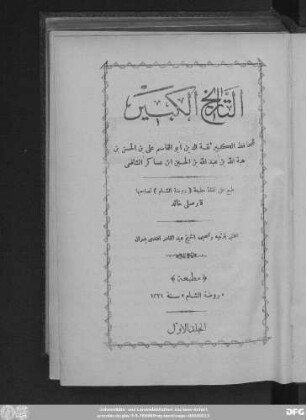 التاريخ الكبير
للحافظ الكبير ثقة الدين أبو القاسم علي بن الحسن بن
هبة الله بن عبد الله بن الحسين ابن عساكر الشافعي
طبع على نفقة مطبعة (روضة الشام) لصاحبها
خالد قارصلي
اعتنى بترتيبه وتصحيحه الشيخ عبد القادر افندي بدران
﴿ مطبعة ﴾
« روضة الشام » سنة
المجلد الأول